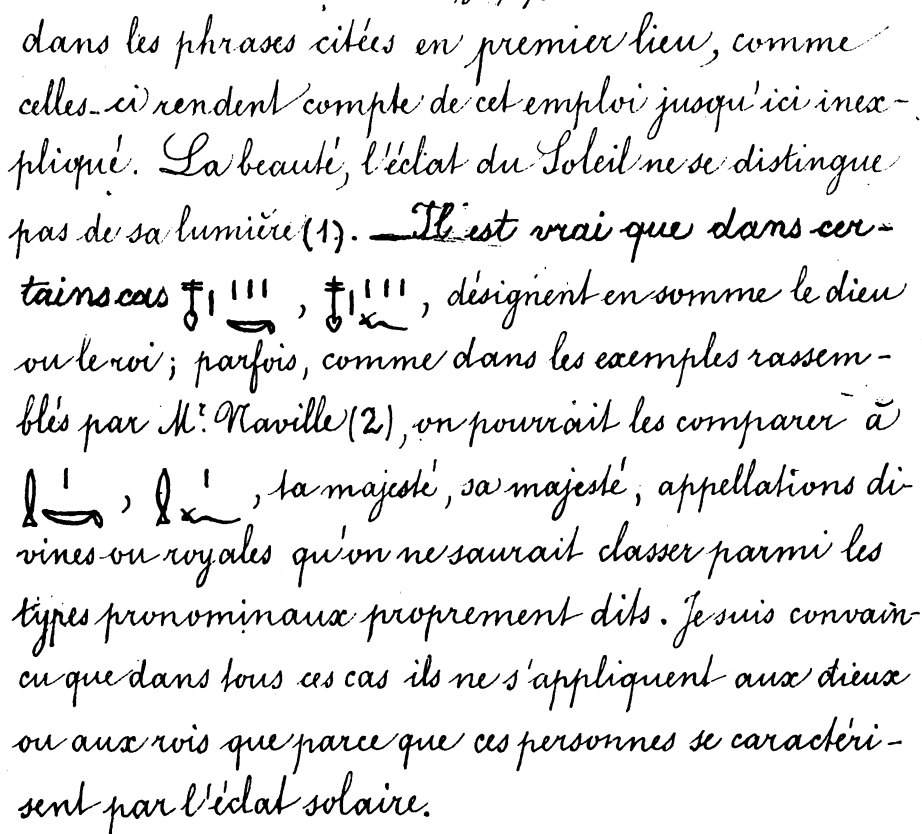 dans les phrases citées en premier lieu, comme
celles-ci rendent compte de cet emploi jusqu'ici inex-
pliqué. La beauté, l'éclat du Soleil ne se distingue
pas de sa lumière (1). — Il est vrai que dans cer-
tains cas 𓄤𓏤𓏥𓎡, 𓄤𓏤𓏥𓆑, désignent en somme le dieu
ou le roi; parfois, comme dans les exemples rassem-
blés par Mr. Naville (2), on pourrait les comparer à
𓍛𓏤𓎡, 𓍛𓏤𓆑, ta majesté, sa majesté, appellations di-
vines ou royales qu'on ne saurait classer parmi les
types pronominaux proprement dits. Je suis convain-
cu que dans tous ces cas ils ne s'appliquent aux dieux
ou aux rois que parce que ces personnes se caractéri-
sent par l'éclat solaire.